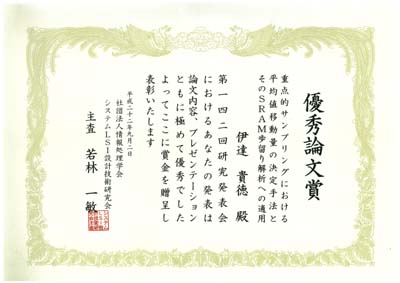 優秀論文賞
重点的サンプリングにおける
平均値移動量の決定手法と
そのSRAM歩留り解析への適用
伊達 貴徳 殿
第一四二回研究発表会
におけるあなたの発表は
論文内容、プレゼンテーション
ともに極めて優秀でした
よってここに賞金を贈呈し
表彰いたします
平成二十二年九月二日
社団法人情報処理学会
システムLSI設計技術研究会
主査 若林 一敏